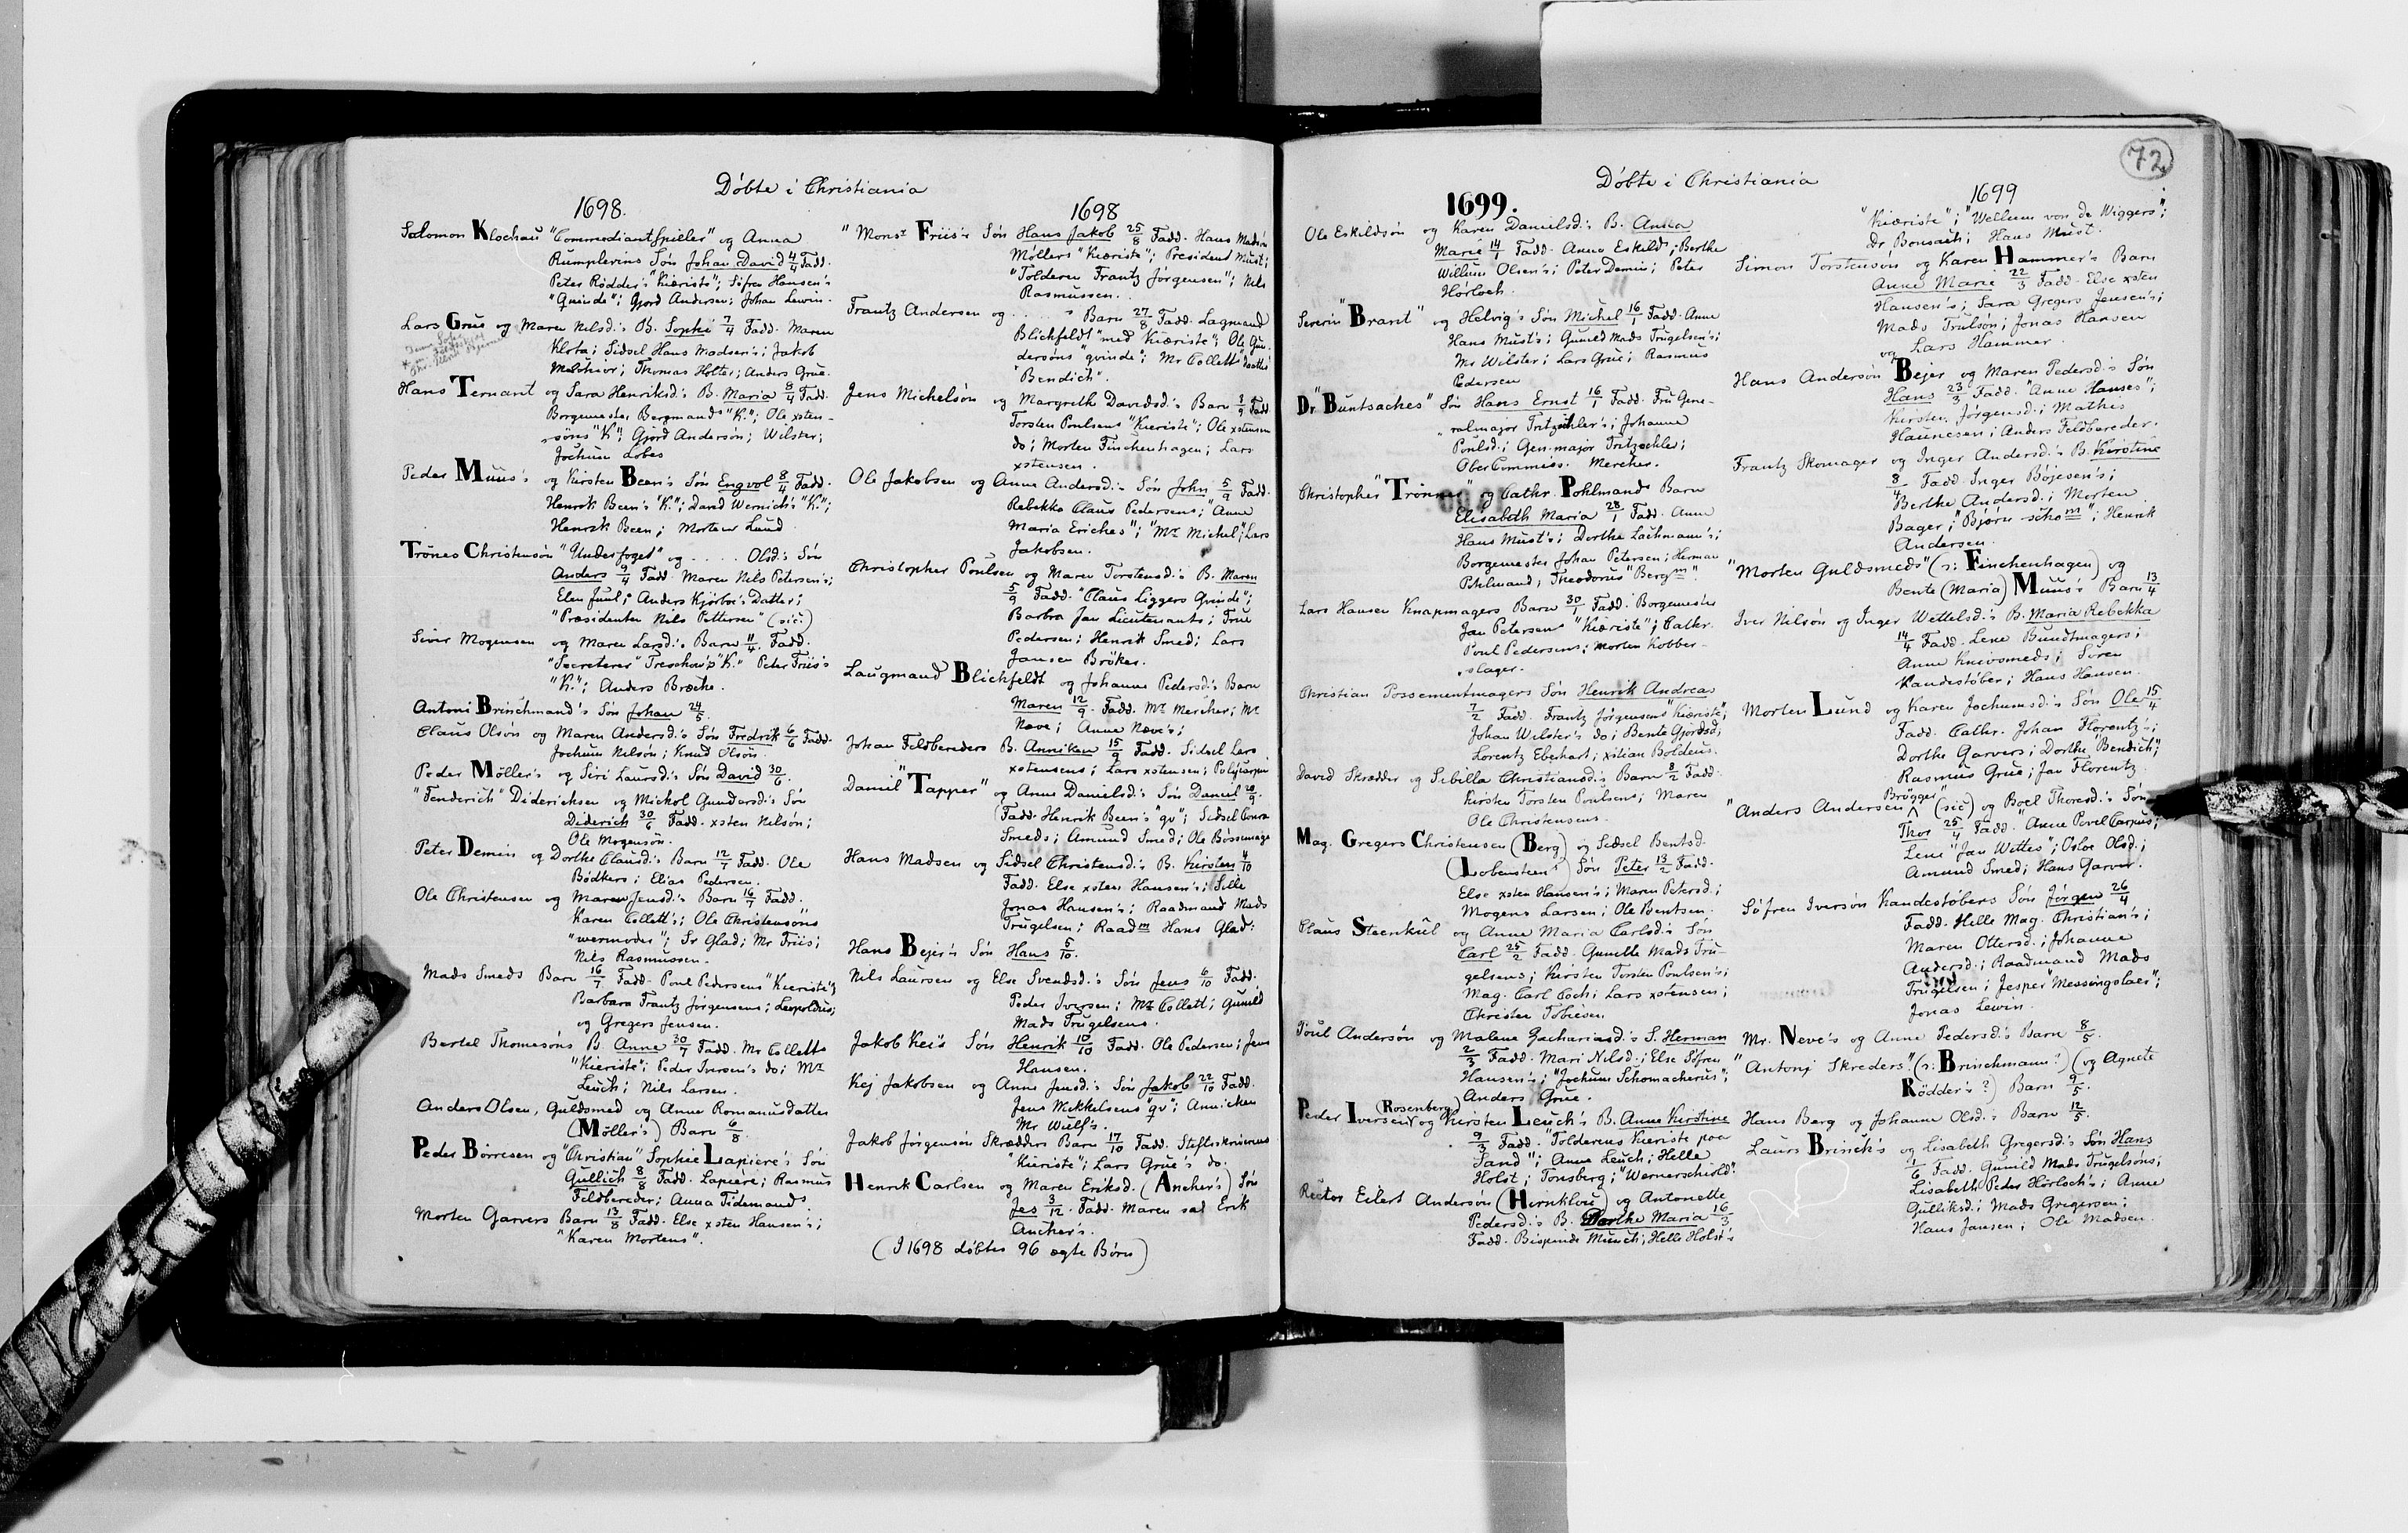 Döbte i Christiania
1698.
Salomon Klochau "Commediantspieller" og Anna
Rumplevins Søn Johan David 4/4 Fadd.
Peter Rödder's "Kiæriste"; Söfren Hansen's
"Qvinde"; Gjord Andersen; Johan Lewin.
Lars Grue og Maren Nilsd.'s B. Sophi 7/4 Fadd. Maren
Klota; Sidsel Hans Madsen's; Jakob
Melchior; Thomas Holter; Anders Grue.
Hans Ternant og Sara Henriksd.'s B. Maria 8/4 Fadd.
Borgemester Bergmands "K."; Ole xsten-
söns "K"; Gjord Andersön; Wilster;
Jochum Lobes
Peder Muus's og Kirsten Been's Søn Engvol 8/4 Fadd.
Henrik Been's "K."; David Wernich's "K.";
Henrik Been; Morten Lund
Trönes Christensön "Underfoget" og ..... Olsd.'s Søn
Anders 9/4 Fadd. Maren Nils Petersen's;
Elen Juul; Anders Kjörboe's Datter;
"Præsidenten Nils Pettersen" (sic)
Siver Mogensen og Maren Larsd.'s Barn 11/4 Fadd.
"Secreterer" Treschow's "K." Peter Friis's
"K."; Anders Bræche.
Antoni Brinchmand's Søn Johan 24/5.
Claus Olsön og Maren Andersd.'s Søn Fredrik 6/6 Fadd.
Jochum Nilsön; Knud Olsön
Peder Möller's og Siri Laursd.'s Søn David 30/6.
"Fenderich" Diderichsen og Michol Gundersd.'s Søn
Diderich 30/6 Fadd. xsten Nilsön;
Ole Mogensön.
Peter Demin og Dorthe Clausd.'s Barn 12/7 Fadd. Ole
Bödkers; Elias Pedersen.
Ole Christensen og Maren Jensd.'s Barn 16/7 Fadd.
Karen Collett's; Ole Christensöns
"wermoder"; Sr Glad; Mr Friis;
Nils Rasmussen.
Mads Smeds Barn 16/7 Fadd. Poul Pedersens "Kieriste";
Barbara Frantz Jörgensens; Leopoldus;
og Gregers Jensen.
Bertel Thomesöns B. Anne 30/7 Fadd. Mr Colletts
"Kieriste"; Peder Iversen's do; Mr
Leuch; Nils Larsen.
Anders Olsen, Guldsmed og Anne Romanusdatter
(Möller's) Barn 6/8.
Peder Börresen og "Christian" Sophie Lapiere's Søn
Gullich 8/8 Fadd. Lapiere; Rasmus
Feldbereder; Anna Tidemand
Morten Garvers Barn 13/8 Fadd. Else xsten Hansen's;
"Karen Mortens".
1698
"Monsr Friis's Søn Hans Jakob 25/8 Fadd. Hans Madsön
Möllers "Kieriste"; President Must;
"Tolderen Frantz Jörgensen"; Nils
Rasmussen.
Frantz Andersen og ..... Barn 27/8 Fadd. Lagmand
Blichfeldt "med Kiæriste"; Ole Gun-
dersöns "qvinde"; Mr Collett; Dorthe
"Bendich".
Jens Michelsön og Margreth Davidsd.'s Barn 3/9 Fadd.
Torsten Poulsens "Kieriste"; Ole xstensen
do; Morten Finchenhagen; Lars
xstensen.
Ole Jakobsen og Anne Andersd.'s Søn John 5/9 Fadd.
Rebekka Claus Pedersens; "Anne
Maria Eriches"; "Mr Michel"; Lars
Jakobsen.
Christopher Poulsen og Maren Torstensd.'s B. Maren
5/9 Fadd. "Claus Liggers Qvinde";
Barbra Jan Lieutenants; True
Pedersen; Henrik Smed; Lars
Jansen Bröker.
Laugmand Blichfeldt og Johanne Pedersd.'s Barn
Maren 12/9. Fadd. Mr Mercher; Mr
Næve; Anne Næve's;
Johan Feldbereders B. Anniken 15/9 Fadd. Sidsel Lars
xstensens; Lars xstensen;
Daniel "Tapper" og Anne Danielsd.'s Søn Daniel 20/9.
Fadd. Henrik Been's "qv"; Sidsel
Smeds; Amund Smed; Ole Bössemager
Hans Madsen og Sidsel Christensd.'s B. Kirsten 4/10
Fadd. Else xsten Hansen's; Sille
Jonas Hansen's; Raadmand Mads
Trugelsen; Raadm Hans Glad.
Hans Bejer's Søn Hans 5/10.
Nils Laursen og Else Svendsd.'s Søn Jens 6/10 Fadd.
Peder Iversen; Mr Collett; Gunild
Mads Trugelsens.
Jakob Kei's Søn Henrik 10/10 Fadd. Ole Pedersen; Jens
Hansen.
Kej Jakobsen og Anne Jensd.'s Søn Jakob 22/10 Fadd.
Jens Mikkelsens "qv"; Annichen
Mr Wulf's.
Jakob Jörgensön Skrædders Barn 17/10 Fadd. Stiftsskriverens
"Kieriste"; Lars Grue's do.
Henrik Carlsen og Maren Eriksd. (Ancher's) Søn
Jes 3/12. Fadd. Maren sal Erik
Ancher's.
(I 1698 döbtes 96 ægte Börn)
72
Döbte i Christiania
1699.
Ole Eskildsön og Karen Danielsd.'s B. Anna
Marie 14/1 Fadd. Anna Eskilds; Berthe
Willum Olsen's; Peter Demin; Peter
Hörloch.
Severin "Brant" og Helvig's Søn Michel 16/1 Fadd. Anne
Hans Must's; Gunild Mads Trugelsen's;
Mr Wilster; Lars Grue; Rasmus
Pedersen
Dr "Buntsaches" Søn Hans Ernst 16/1 Fadd. Fru Gene-
ralmajor Tritzschler's; Johanne
Poulsd.; Gen.major Tritzschler;
OberCommiss. Mercher.
Christopher "Trönner" og Cathr. Pohlmands Barn
Elisabeth Maria 28/1 Fadd. Anne
Hans Must's; Dorthe Lachmann's;
Borgemester Johan Petersen; Herman
Pohlmand; Theodorus "Bergm".
Lars Hansen Knapmagers Barn 30/1 Fadd. Borgemester
Jan Petersens "Kiæriste"; Cathr.
Poul Pedersens; Morten Kobber-
slager.
Christian Possementmagers Søn Henrik Andreas
7/2 Fadd. Frantz Jörgensens "Kiæriste";
Johan Wilster's do; Bente Gjordsd;
Lorentz Eberhart; xstian Boldeus.
David Skrædder og Sibilla Christiansd.'s Barn 8/2 Fadd.
Kirsten Torsten Poulsens; Maren
Ole Christensens.
Mag. Gregers Christensen (Berg) og Sidsel Bentsd.
(Lobenstein's) Søn Peter 13/2 Fadd.
Else xsten Hansen's; Maren Petersd.;
Mogens Larsen; Ole Bentsen.
Claus Steenkul og Anne Maria Carlsd.'s Søn
Carl 25/2 Fadd. Gunille Mads Tru-
gelsens; Kirsten Torsten Poulsen's;
Mag. Carl Coch; Lars xstensen;
Christen Tobiesen
Poul Andersön og Malene Zachariasd.'s S. Herman
2/3 Fadd. Mari Nilsd.; Else Söfren
Hansen's; "Jochum Schomacherus";
Anders Grue.
Peder Iversen (Rosenberg) og Kirsten Leuch's B. Anne Kirstine
9/3 Fadd. "Tolderens Kieriste paa
Sand"; Anne Leuch; Helle
Holst; Tonsberg; "Wernerschiold".
Rector Eilert Andersön (Hirnklou) og Antonette
Pedersd.'s B. Dorthe Maria 16/3
Fadd. Bispinde Munch; Helle Holst's
1699
"Kiæriste"; "Wellum von de Wiggers";
Dr Bonsach; Hans Must.
Simon Torstensön og Karen Hammer's Barn
Anne Marie 22/3 Fadd. Else xsten
Hansen's; Sara Gregers Jensen's;
Mads Trulsön; Jonas Hansen
og Lars Hammer.
Hans Andersön Bejer og Maren Pedersd.'s Søn
Hans 23/3 Fadd. "Anne Hanses";
Kirsten Jörgensd.; Mathis
Haunesen; Anders Feldbereder.
Frantz Skomager og Inger Andersd.'s B. Kirstine
8/4 Fadd. Inger Böjesen's;
Berthe Andersd.; Morten
Bager; "Björn schom"; Henrik
Andersen.
"Morten Guldsmeds" (ɔ: Finchenhagen) og
Bente (Maria) Muus's Barn 13/4
Iver Nilsön og Inger Wettelsd.'s B. Maria Rebekka
14/4 Fadd. Lene Bundtmagers;
Anne Knivsmeds; Sören
Kandestöber; Hans Hansen.
Morten Lund og Karen Jochumsd.'s Søn Ole 15/4
Fadd. Cathr. Johan Florentz's;
Dorthe Garvers; Dorthe "Bendich";
Rasmus Grue; Jan Florentz.
"Anders Andersen Brögger" (sic) og Boel Thoresd.'s Søn
Thor 25/4 Fadd. "Anne Povel Carpus";
Lene "Jan Wittes"; Osloe Olsd.;
Amund Smed; Hans Garver.
Söfren Iversön Kandestöbers Søn Jörgen 26/4
Fadd. Helle Mag. Christian's;
Maren Ottersd.; Johanne
Andersd.; Raadmand Mads
Trugelsen; Jesper "Messingslaer";
Jonas Lewin.
Mr. Neve's og Anne Pedersd.'s Barn 8/5.
"Antonj Skreders" (ɔ: Brinchmann?) (og Agnete
Rödder's?) Barn 9/5.
Hans Berg og Johanne Olsd.'s Barn 12/5.
Laurs Brinck's og Lisabeth Gregersd.'s Søn Hans
1/6 Fadd. Gunild Mads Trugelsöns;
Lisabeth Peder Hörloch's; Anne
Gulliksd.; Mads Gregersen;
Hans Jansen; Ole Madsen.